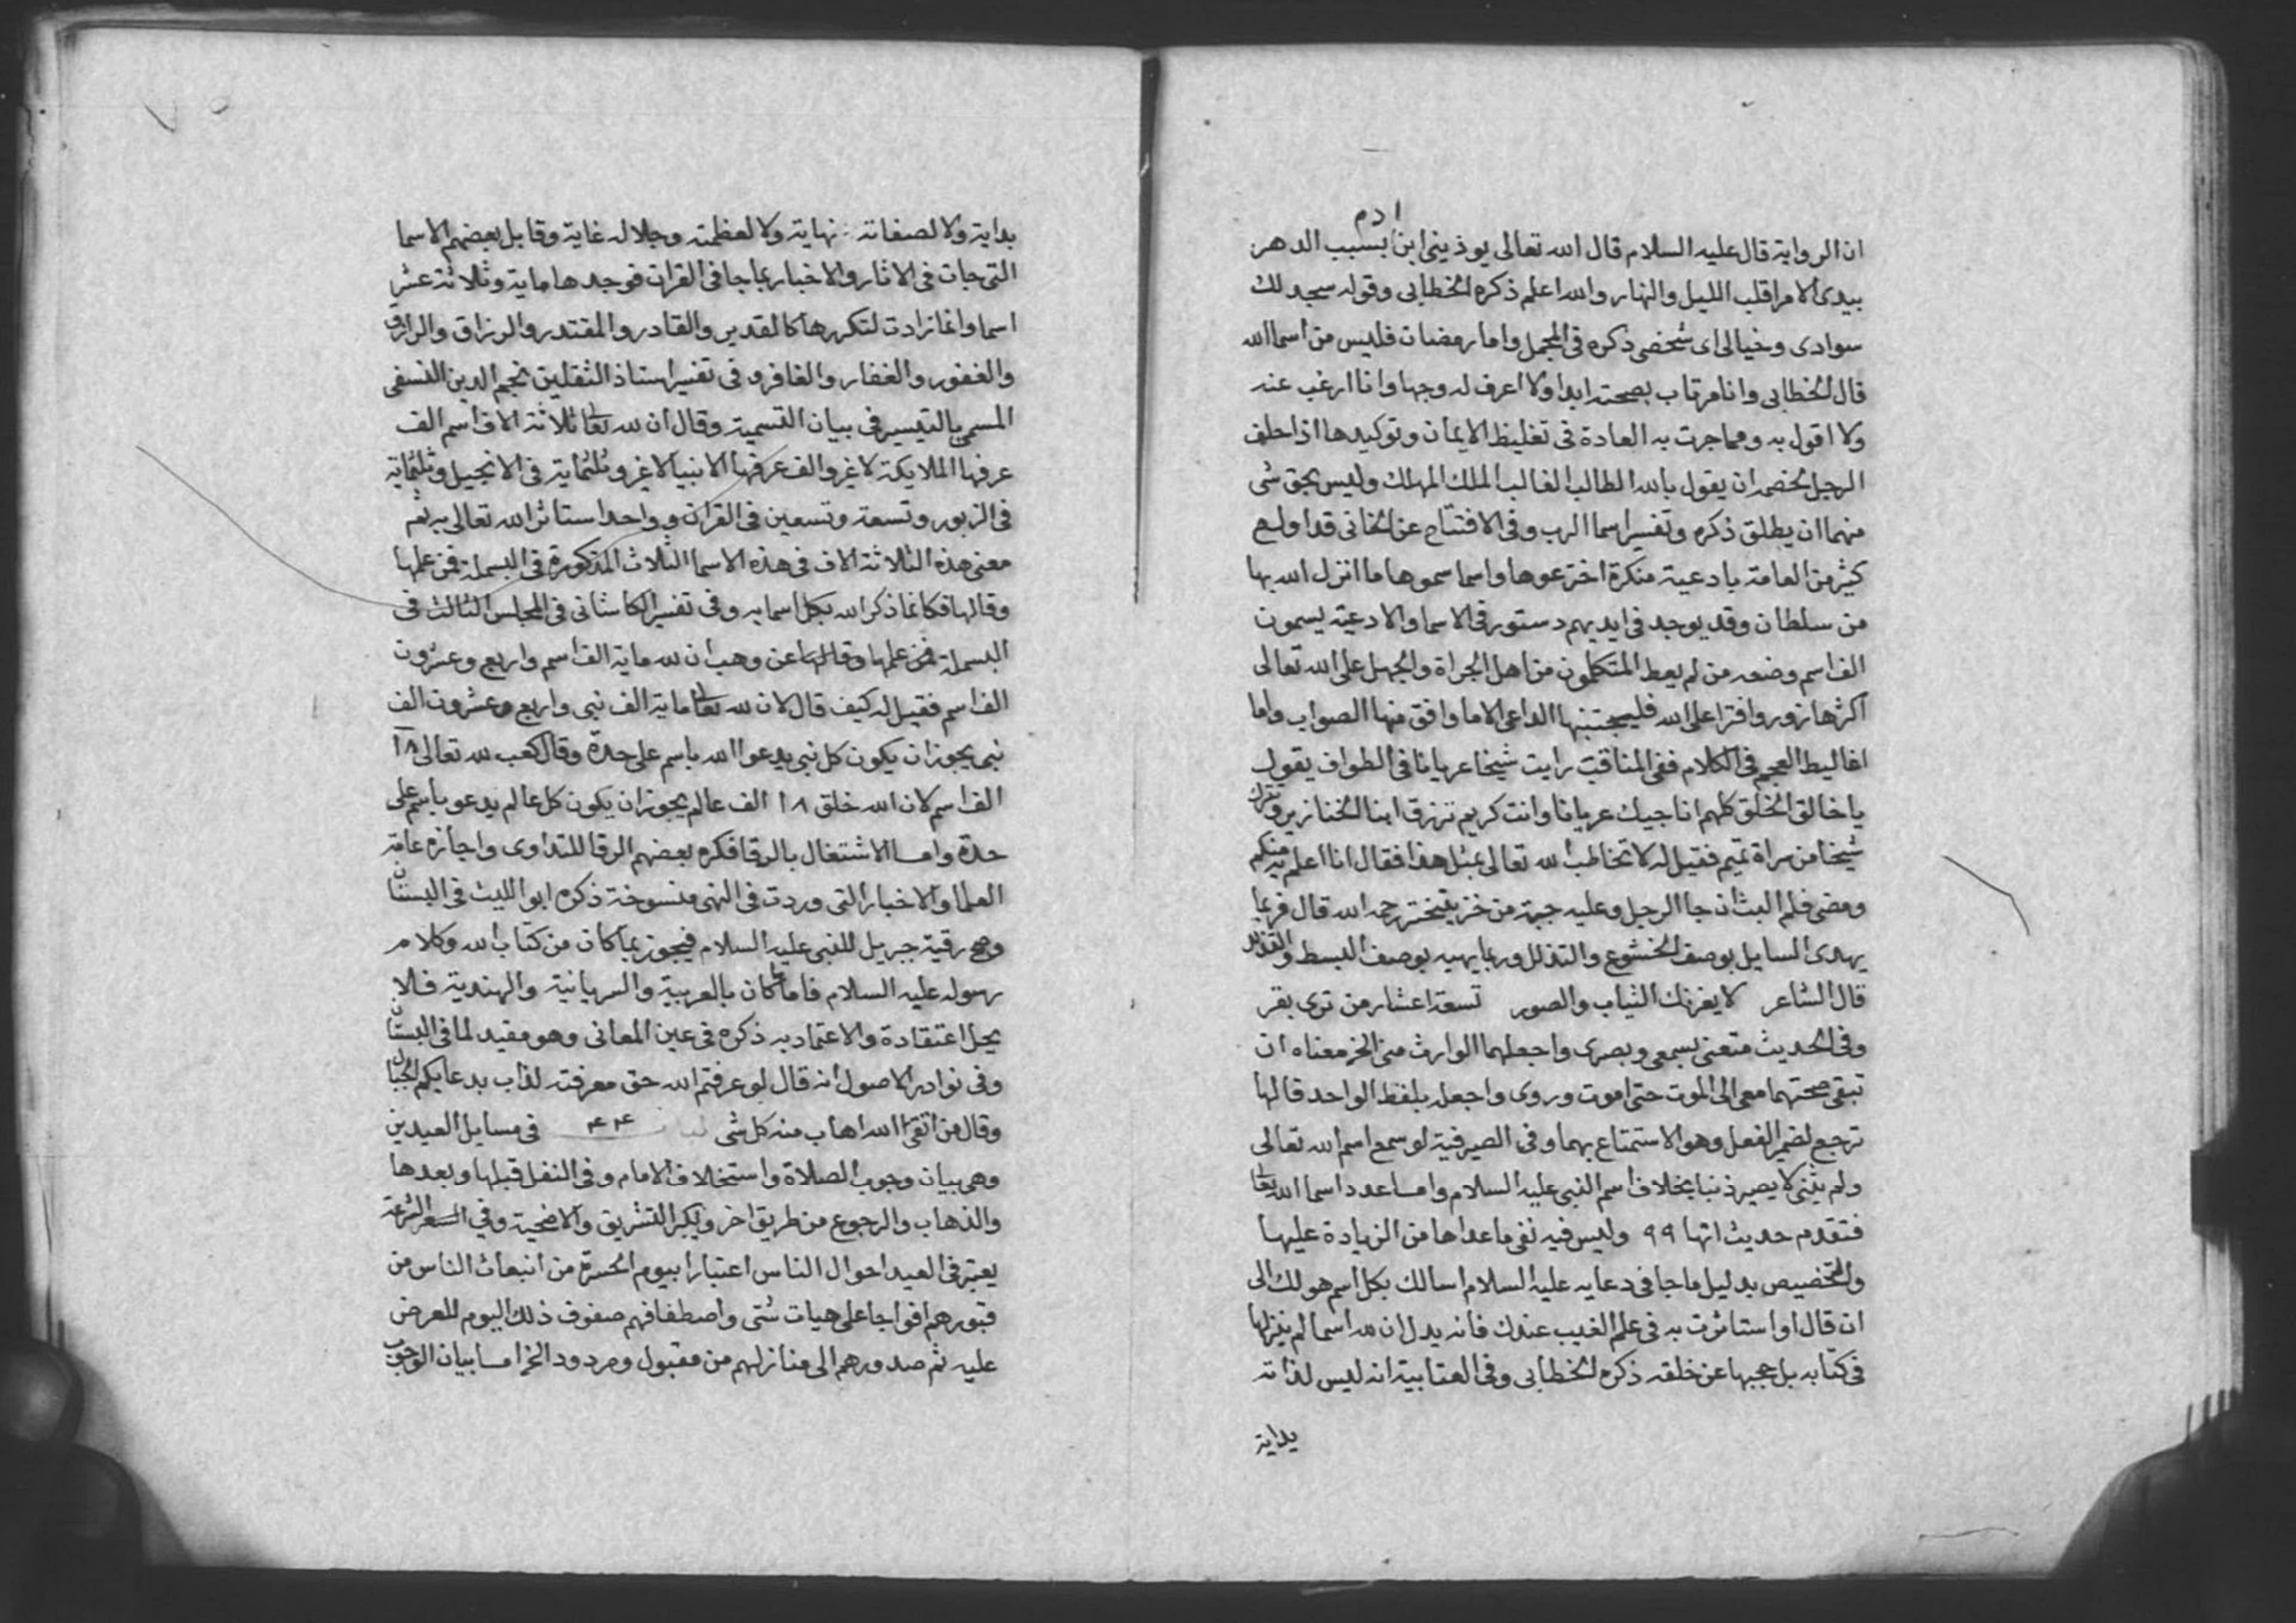 ان الرواية قال عليه السلام قال الله تعالى يوذينى ابن ادم بسبب الدهر
بيدى الامر اقلب الليل والنهار والله اعلم ذكره الخطابى وقوله سجد لك
سوادى وخيالى اى شخصى ذكره فى المجمل واما رمضان فليس من اسما الله
قال الخطابى وانا مرتاب بصحته ابدا ولا اعرف له وجها وانا ارغب عنه
ولا اقول به ومما جرت به العادة فى تغليظ الايمان وتوكيدها اذا حلف
الرجل لخصمه ان يقول بالله الطالب الغالب الملك المهلك وليس بحق شى
منهما ان يطلق ذكره وتفسير اسما الرب وفى الافتتاح عن الخانى قد اولع
كثير من العامة بادعية منكرة اخترعوها واسما سموها ما انزل الله بها
من سلطان وقد يوجد فى ايديهم دستور فى الاسما والادعية يسمون
الف اسم وضعه من لم يعط المتكلمون من اهل الجراة والجهل على الله تعالى
اكثرها زور وافترا على الله فليجتنبها الداعى الا ما وافق منها الصواب واما
اغاليط العجم فى الكلام ففى المناقب رايت شيخا عريانا فى الطواف يقول
يا خالق الخلق كلهم انا جيك عريانا وانت كريم ترزق ابنا الخنازير وتترك
شيخا من سراة تميم فقيل له لا تخاطب الله تعالى بمثل هذا فقال انا اعلم به منكم
ومضى فلم البث ان جا الرجل وعليه جبة من خز يتبختر رحمه الله قال فربما
يهدى السايل بوصف الخشوع والتذلل وربما يهيه بوصف البسط
قال الشاعر لا يغرنك الثياب والصور تسعة اعشار من ترى بقر
وفى الحديث متعنى بسمعى وبصرى واجعلهما الوارث منى الخ معناه ان
تبقى صحتهما معى الى الموت حتى اموت وروى واجعله بلفظ الواحد قالها
ترجع لضمير الفعل وهو الاستمتاع بهما وفى الصيرفية لو سمع اسم الله تعالى
ولم يثنى لا يصير ذنبا بخلاف اسم النبى عليه السلام واما عدد اسما الله تعا
فتقدم حديث انها ٩٩ وليس فيه نفى ما عداها من الزيادة عليها
والتخصيص بدليل ما جا فى دعايه عليه السلام اسالك بكل اسم هو لك الى
ان قال او استاثرت به فى علم الغيب عندك فانه يدل ان لله اسما لم ينزلها
فى كتابه بل حجبها عن خلقه ذكره الخطابى وفى العتابية انه ليس لذاته
بداية
بداية ولا لصفاته نهاية ولا لعظمته وجلاله غاية وقابل بعضهم الاسما
التى جات فى الاثار والاخبار بما جا فى القران فوجدها ماية وثلاثة عشر
اسما وانما زادت لتكررها كالقدير والقادر والمقتدر والرزاق والرازق
والغفور والغفار والغافر وفى تفسير استاذ الثقلين نجم الدين النسفى
المسمى بالتيسير فى بيان التسمية وقال ان لله تعا ثلاثة الاف اسم الف
عرفها الملايكة لا غير والف عرفها الانبيا لا غير وثلثماية فى الانجيل وثلثماية
فى الزبور وتسعة وتسعين فى القران وواحد استاثر الله تعالى به ثم
معنى هذه الثلاثة الاف فى هذه الاسما الثلاث المذكورة فى البسملة فمن علمها
وقالها فكانما ذكر الله بكل اسمايه وفى تفسير الكاشانى فى المجلس الثالث فى
البسملة فمن علمها وقالها عن وهب ان لله ماية الف اسم واربع وعشرون
الف اسم فقيل له كيف قال لان لله تعا ماية الف نبى واربع وعشرون الف
نبى يجوز ان يكون كل نبى يدعوا الله باسم على حدة وقال كعب لله تعالى ١٨
الف اسم لان الله خلق ١٨ الف عالم يجوز ان يكون كل عالم يدعو باسم على
حدة واما الاشتغال بالرقا فكره بعضهم الرقا للتداوى واجازه عامة
العلما والاخبار التى وردت فى النهى منسوخة ذكره ابو الليث فى البستان
وصح رقية جبريل للنبى عليه السلام فيجوز بما كان من كتاب الله وكلام
رسوله عليه السلام فاما ما كان بالعربية والسريانية والهندية فلا
يحل اعتقادة والاعتماد به ذكره فى عين المعانى وهو مقيد لما فى البستان
وفى نوادر الاصول انه قال لو عرفتم الله حق معرفته لذاب بدعايكم الجبال
وقال من اتقى الله اهاب منه كل شى ٤٤ فى مسايل العيدين
وهى بيان وجوب الصلاة واستخلاف الامام وفى النفل قبلها وبعدها
والذهاب والرجوع من طريق اخر وتكبير التشريق والاضحية وفى الشرعة
يعتبر فى العيد احوال الناس اعتبارا بيوم الحسرة من انبعاث الناس من
قبورهم افواجا على هيات شتى واصطفافهم صفوف ذلك اليوم للعرض
عليه ثم صدورهم الى منازلهم من مقبول ومردود الخ اما بيان الوجوب